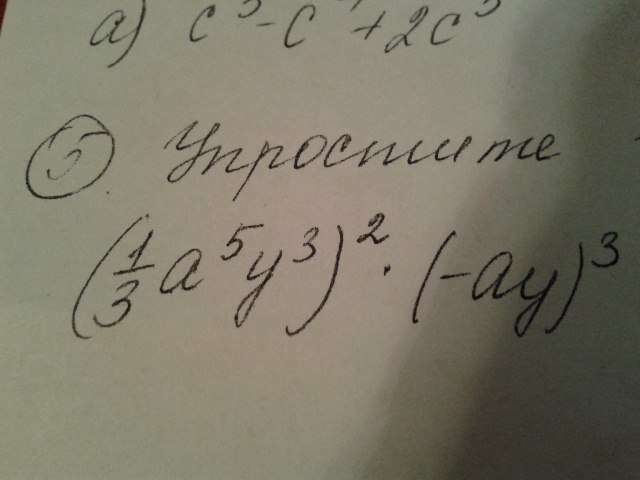 а) c³ - c + 2c³
⑤. Упростите
(1/3 a⁵y³)² · (-ay)³